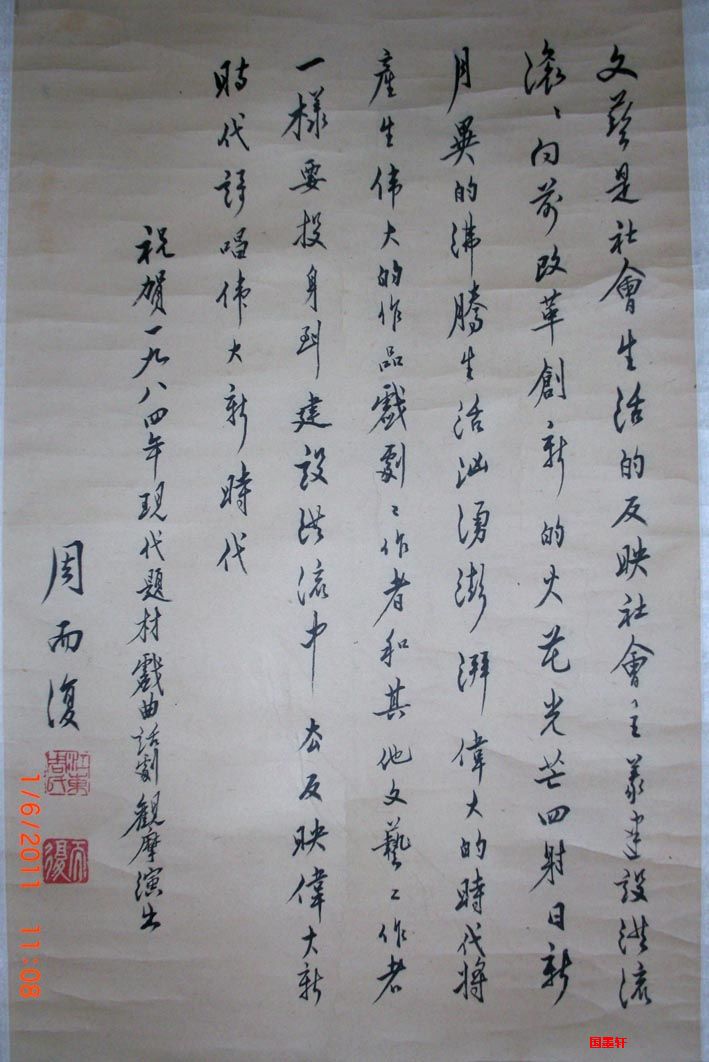 文藝是社會生活的反映社會主義建設洪流
滚々向前改革創新的火花光芒四射日新
月異的沸騰生活汹湧澎湃偉大的時代将
產生伟大的作品戲劇工作者和其他文藝工作者
一樣要投身到建設洪流中去反映偉大新
時代謌唱伟大新時代
祝賀一九八四年現代題材戲曲話劇觀摩演出
周而復
江東周氏
而復
1/6/2011 11:08
国墨轩